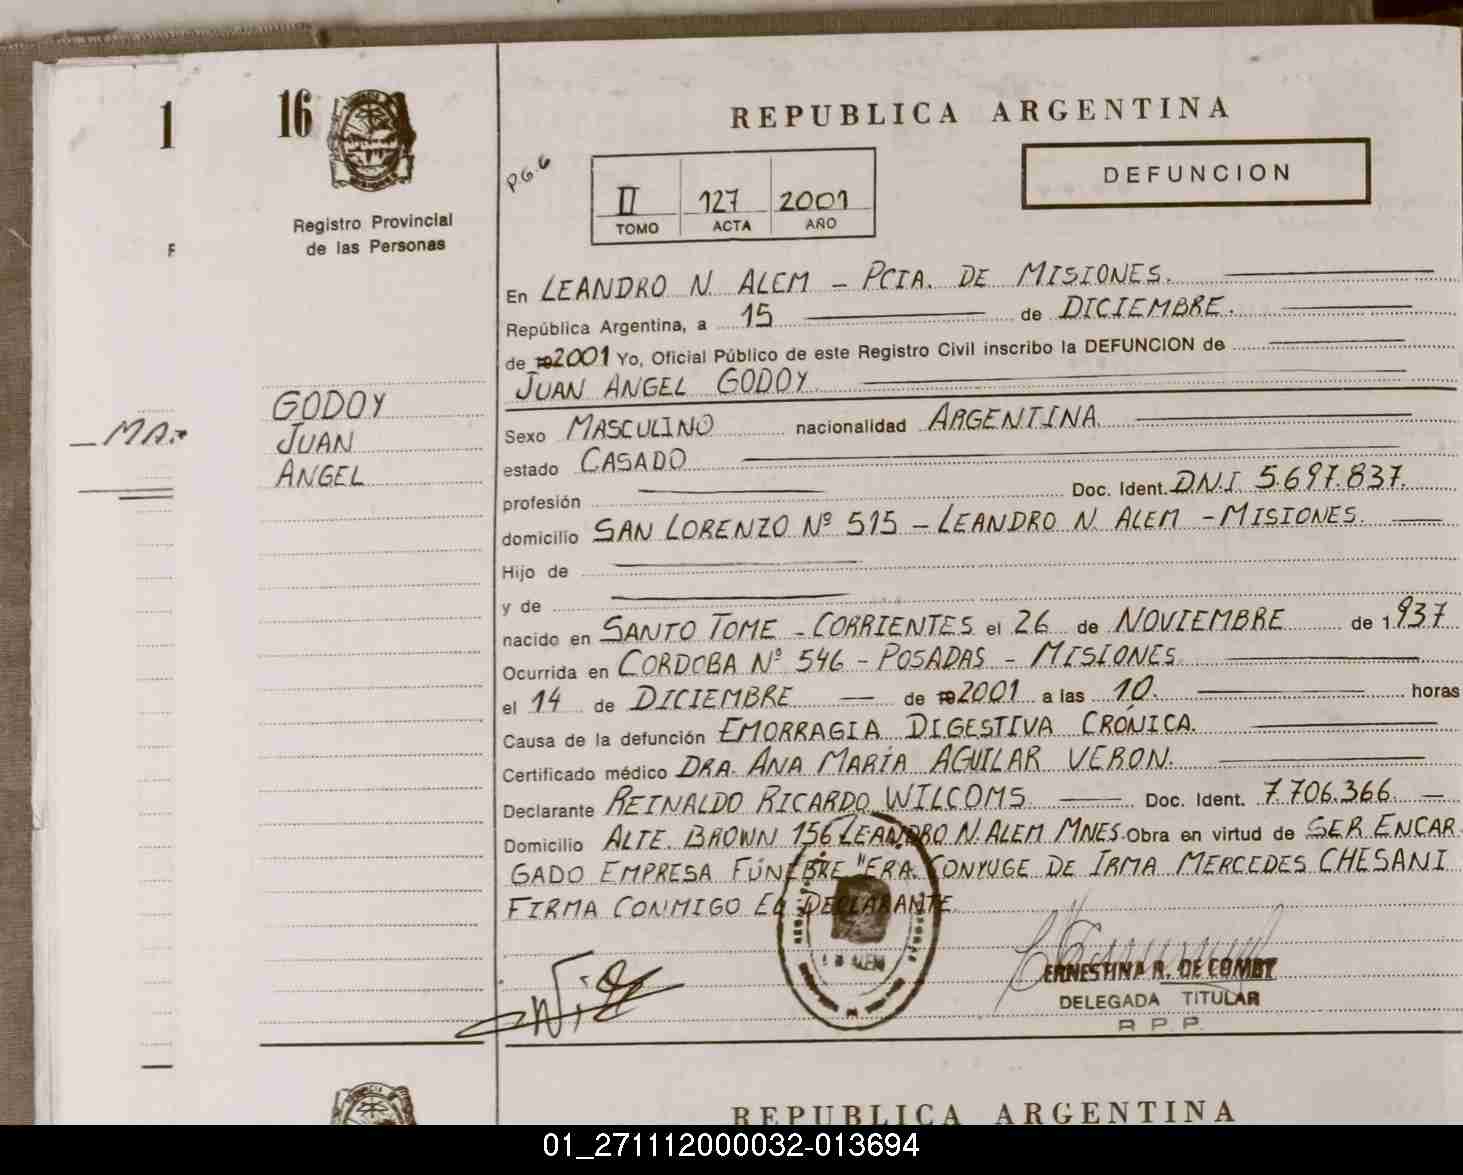 1
16
REPUBLICA ARGENTINA
P.G. 6
DEFUNCION
II 127 2001
TOMO ACTA AÑO
Registro Provincial
de las Personas
F
En LEANDRO N. ALEM - PCIA. DE MISIONES.
República Argentina, a 15 de DICIEMBRE.
de 19 2001 Yo, Oficial Público de este Registro Civil inscribo la DEFUNCION de
JUAN ANGEL GODOY.
GODOY
JUAN
ANGEL
Sexo MASCULINO nacionalidad ARGENTINA.
estado CASADO
profesión Doc. Ident. D.N.I. 5.697.837.
domicilio SAN LORENZO Nº 515 - LEANDRO N. ALEM - MISIONES.
Hijo de
y de
nacido en SANTO TOME - CORRIENTES el 26 de NOVIEMBRE de 1.937
Ocurrida en CORDOBA Nº 546 - POSADAS - MISIONES
el 14 de DICIEMBRE de 19 2001 a las 10. horas
Causa de la defunción EMORRAGIA DIGESTIVA CRÓNICA.
Certificado médico DRA. ANA MARÍA AGUILAR VERON.
Declarante REINALDO RICARDO WILCOMS Doc. Ident. 7.706.366
Domicilio ALTE. BROWN 156 LEANDRO N. ALEM MNES. Obra en virtud de SER ENCAR
GADO EMPRESA FÚNEBRE "ERA CONYUGE DE IRMA MERCEDES CHESANI
FIRMA CONMIGO EL DECLARANTE
ALEM
ERNESTINA R. DE COMBY
DELEGADA TITULAR
R P P
REPUBLICA ARGENTINA
01_271112000032-013694